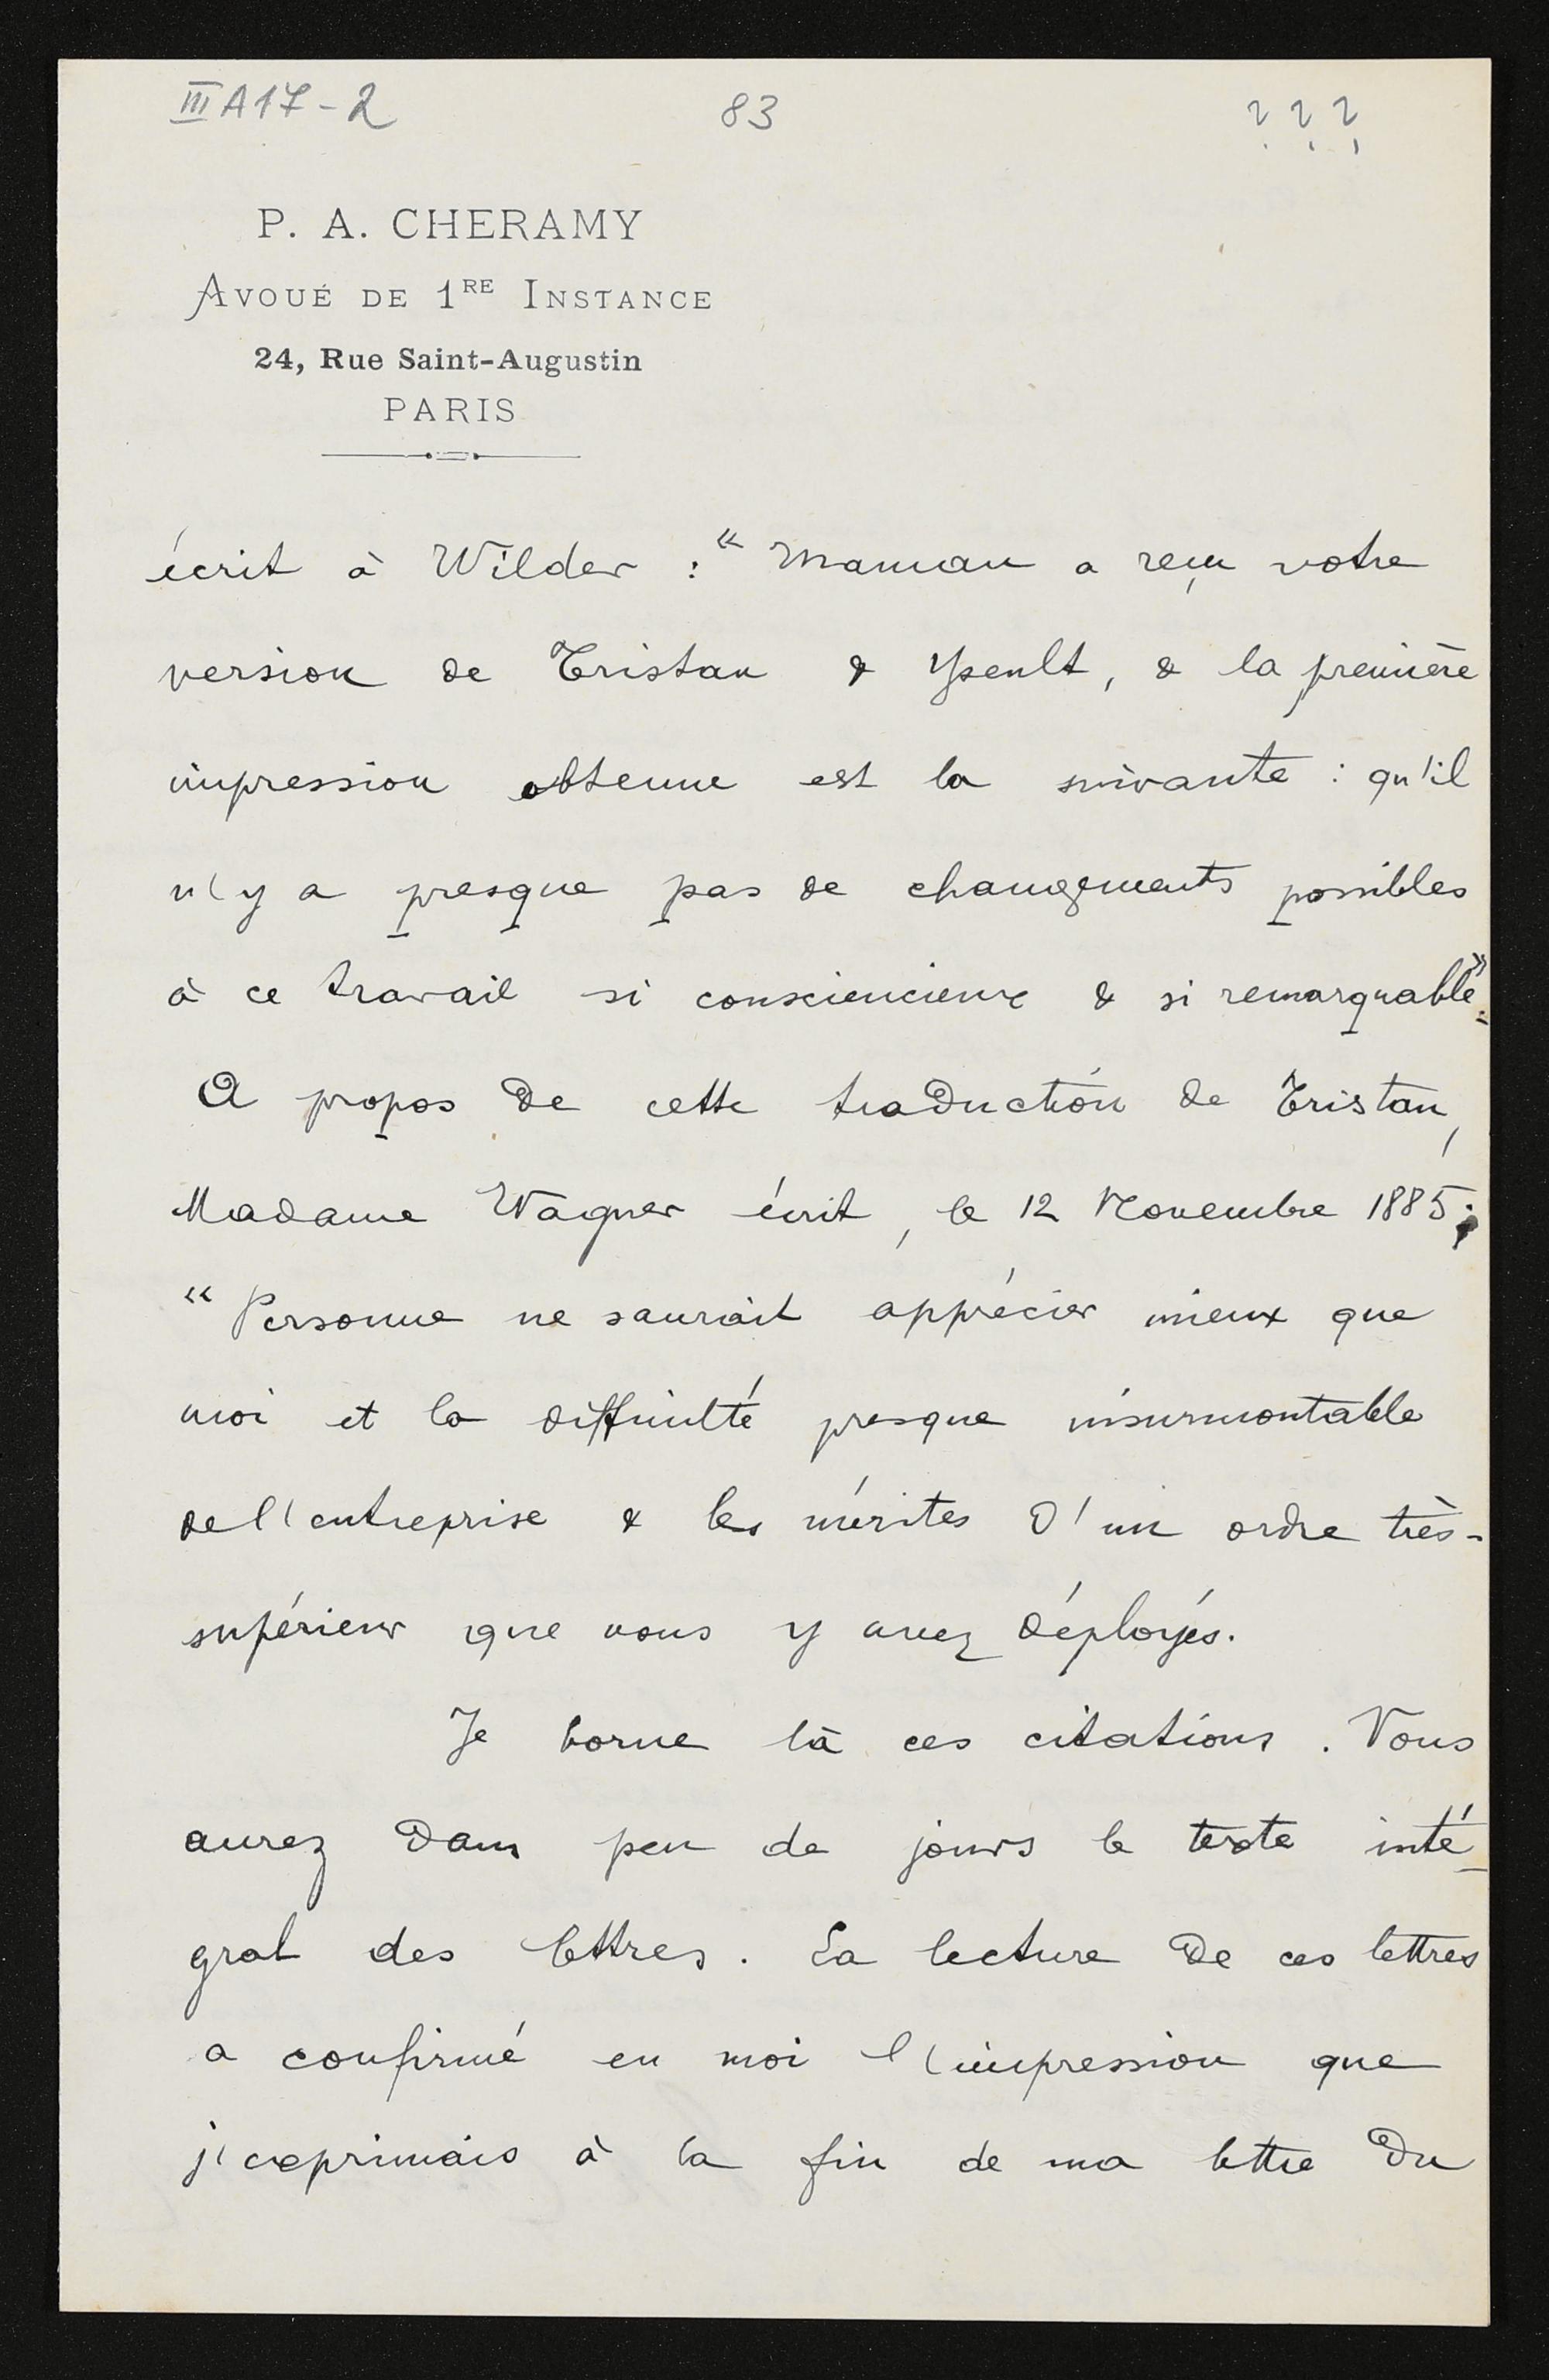 III A17-2
83
? ? ?
P. A. CHERAMY
AVOUÉ DE 1RE INSTANCE
24, Rue Saint-Augustin
PARIS
écrit à Wilder : « Maman a reçu votre
version de Tristan & Yseult, & la première
impression obtenue est la suivante : qu'il
n'y a presque pas de changements possibles
à ce travail si consciencieux & si remarquable ».
A propos de cette traduction de Tristan,
Madame Wagner écrit, le 12 Novembre 1885 :
« Personne ne saurait apprécier mieux que
moi et la difficulté presque insurmontable
de l'entreprise & les mérites d'un ordre très-
supérieur que vous y avez déployés.
Je borne là ces citations. Vous
aurez dans peu de jours le texte inté-
gral des lettres. La lecture de ces lettres
a confirmé en moi l'impression que
j'exprimais à la fin de ma lettre du